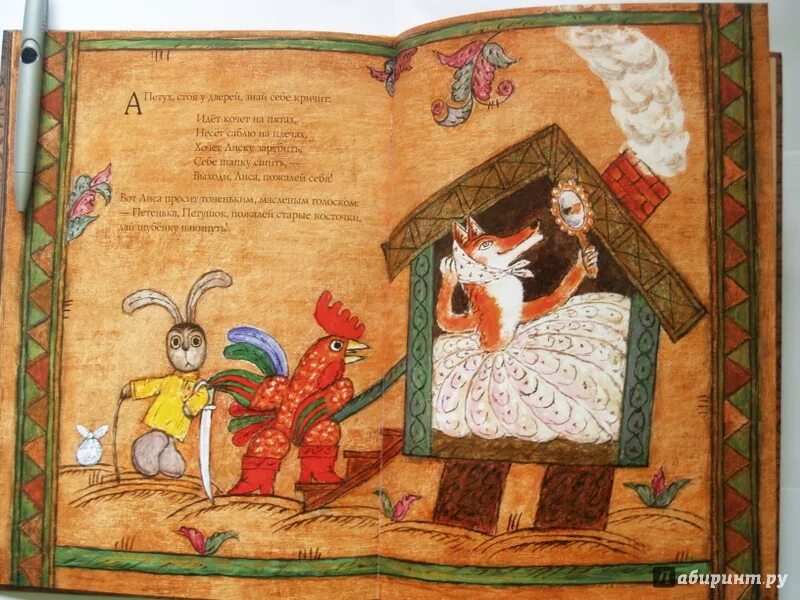 А Петух, стоя у дверей, знай себе кричит:
Идёт кочет на пятах,
Несёт саблю на плечах,
Хочет Лиску зарубить,
Себе шапку сшить, —
Выходи, Лиса, пожалей себя!
Вот Лиса просит тоненьким, масленым голоском:
— Петенька, Петушок, пожалей старые косточки,
дай шубёнку накинуть!
Лабиринт.ру